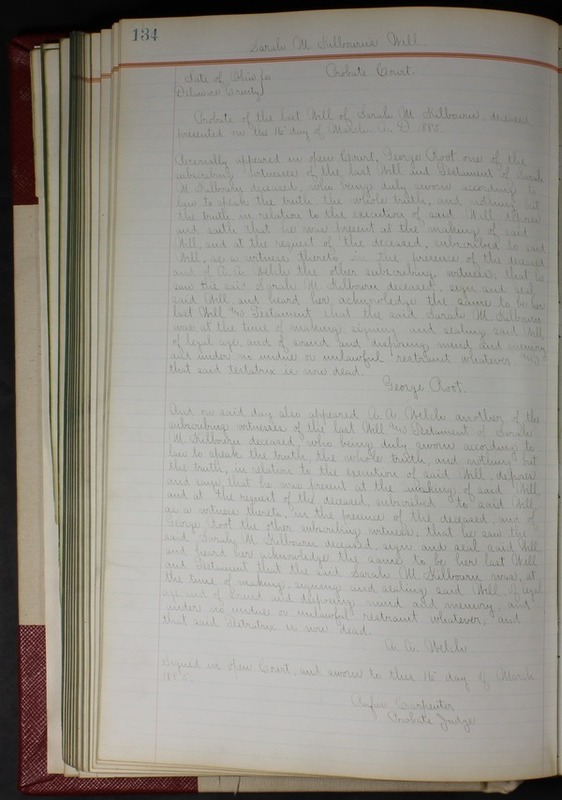 134
Sarah M. Kilbourne Will.
State of Ohio ss Probate Court.
Delaware County
Probate of the last Will of Sarah M. Kilbourn, deceased
presented on the 16" day of March A. D. 1885.
Personally appeared in open Court, George Root one of the
subscribing witnesses of the last Will and Testament of Sarah
M. Kilbourn deceased, who being duly sworn according to
law to speak the truth the whole truth, and nothing but
the truth, in relation to the execution of said Will deposes
and saith that he was present at the making of said
Will, and at the request of the deceased, subscribed to said
Will, as a witness thereto, in the presence of the deceased
and of A. A. Welch the other subscribing witness; that he
saw the said Sarah M. Kilbourn deceased, sign and seal
said Will and heard her acknowledge the same to be her
last Will and Testament that the said Sarah M. Kilbourn
was at the time of making, signing and sealing said Will
of legal age, and of sound and disposing mind and memory
and under no undue or unlawful restraint whatever, and
that said testatrix is now dead.
George Root.
And on said day also appeared A. A. Welch another of the
subscribing witnesses of the last Will and Testament of Sarah
M. Kilbourn deceased, who being duly sworn according to
law to speak the truth, the whole truth, and nothing but
the truth, in relation to the execution of said Will, deposes
and says, that he was present at the making of said Will,
and at the request of the deceased, subscribed to said Will
as a witness thereto, in the presence of the deceased, and of
George Root the other subscribing witness; that he saw the
said Sarah M. Kilbourn deceased, sign and seal said Will
and heard her acknowledge the same to be her last Will
and Testament that the said Sarah M. Kilbourn was, at
the time of making, signing and sealing said Will, of legal
age and of sound and disposing mind and memory, and
under no undue or unlawful restraint whatever, and
that said Testatrix is now dead.
A. A. Welch
Signed in open Court, and sworn to this 16" day of March
1885.
Rufus Carpenter
Probate Judge